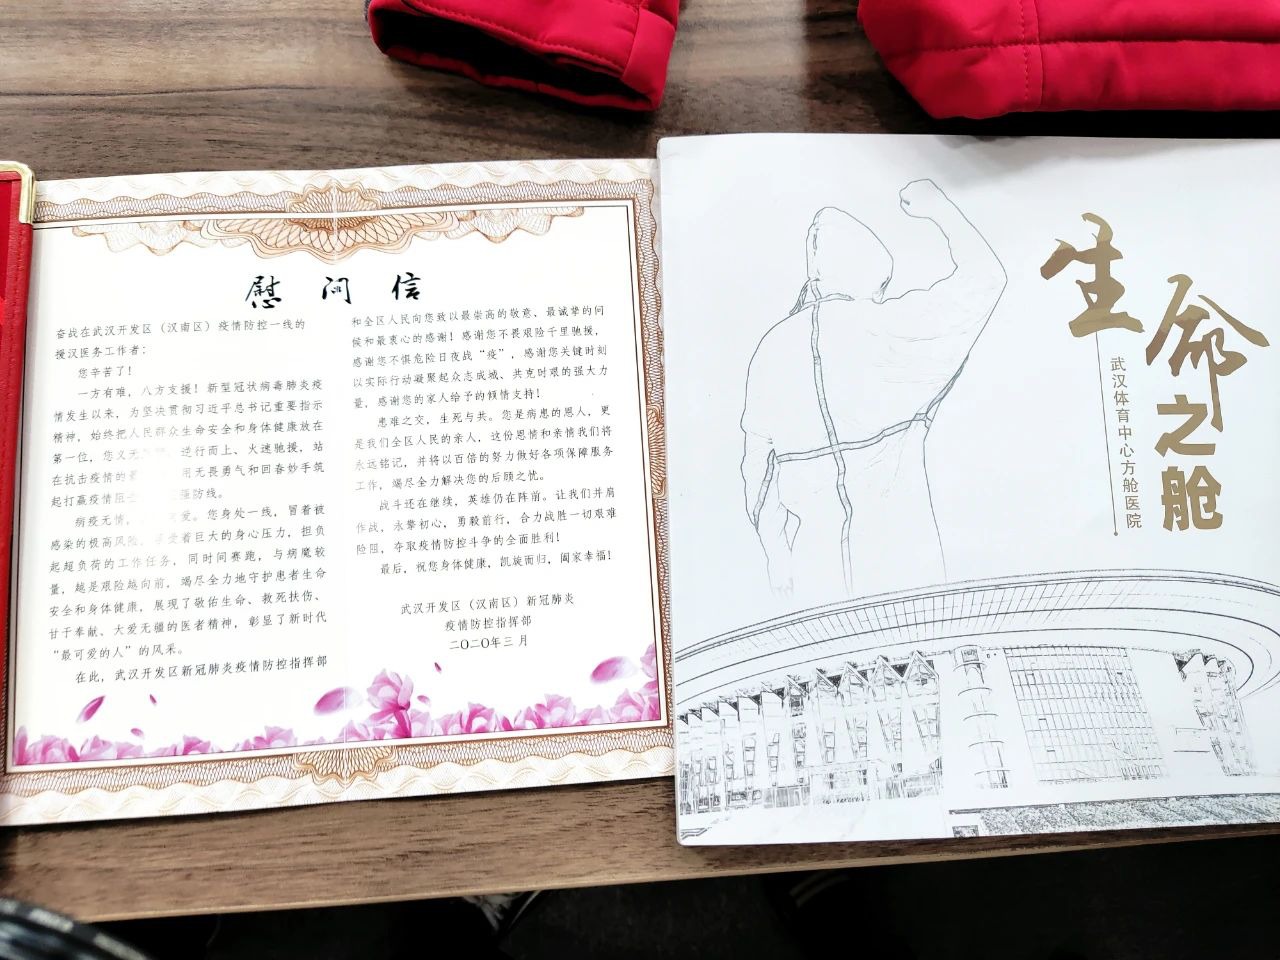 慰问信
奋战在武汉开发区（汉南区）疫情防控一线的
援汉医务工作者：
您辛苦了！
一方有难，八方支援！新型冠状病毒肺炎疫
情发生以来，为坚决贯彻习近平总书记重要指示
精神，始终把人民群众生命安全和身体健康放在
第一位，您义无 逆行而上、火速驰援，站
在抗击疫情的最 用无畏勇气和回春妙手筑
起打赢疫情阻击 防线。
病疫无情， 爱。您身处一线，冒着被
感染的极高风险，承受着巨大的身心压力，担负
起超负荷的工作任务，同时间赛跑，与病魔较
量，越是艰险越向前，竭尽全力地守护患者生命
安全和身体健康，展现了敬佑生命、救死扶伤、
甘于奉献、大爱无疆的医者精神，彰显了新时代
“最可爱的人”的风采。
在此，武汉开发区新冠肺炎疫情防控指挥部
和全区人民向您致以最崇高的敬意、最诚挚的问
候和最衷心的感谢！感谢您不畏艰险千里驰援，
感谢您不惧危险日夜战“疫”，感谢您关键时刻
以实际行动凝聚起众志成城、共克时艰的强大力
量，感谢您的家人给予的倾情支持！
患难之交，生死与共。您是病患的恩人，更
是我们全区人民的亲人，这份恩情和亲情我们将
永远铭记，并将以百倍的努力做好各项保障服务
工作，竭尽全力解决您的后顾之忧。
战斗还在继续，英雄仍在阵前。让我们并肩
作战，永擎初心，勇毅前行，合力战胜一切艰难
险阻，夺取疫情防控斗争的全面胜利！
最后，祝您身体健康，凯旋而归，阖家幸福！
武汉开发区（汉南区）新冠肺炎
疫情防控指挥部
二〇二〇年三月
生命之舱
武汉体育中心方舱医院